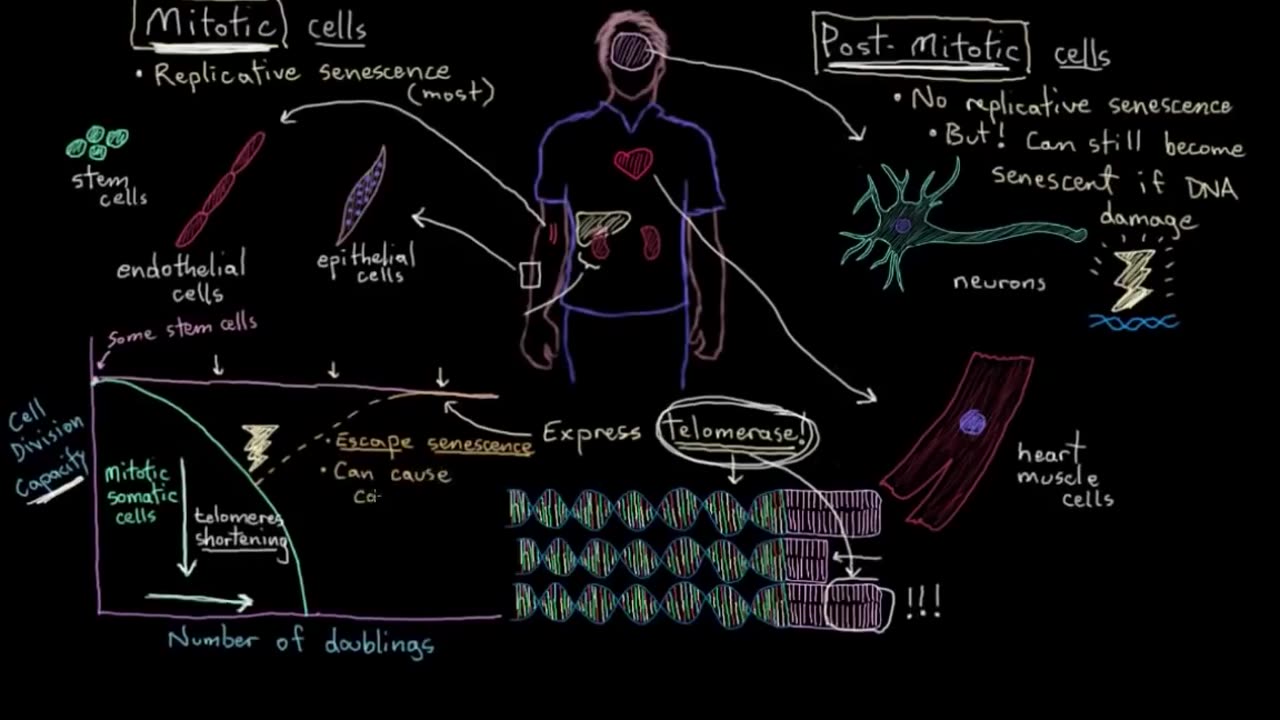 Mitotic cells
• Replicative senescence
(most)
stem
cells
endothelial
cells
epithelial
cells
Post-Mitotic cells
• No replicative senescence
• But! Can still become
senescent if DNA
damage
neurons
heart
muscle
cells
Some stem cells
Cell
Division
Capacity
mitotic
somatic
cells
telomeres
shortening
• Escape senescence
• Can cause
Number of doublings
Express telomerase!
!!!